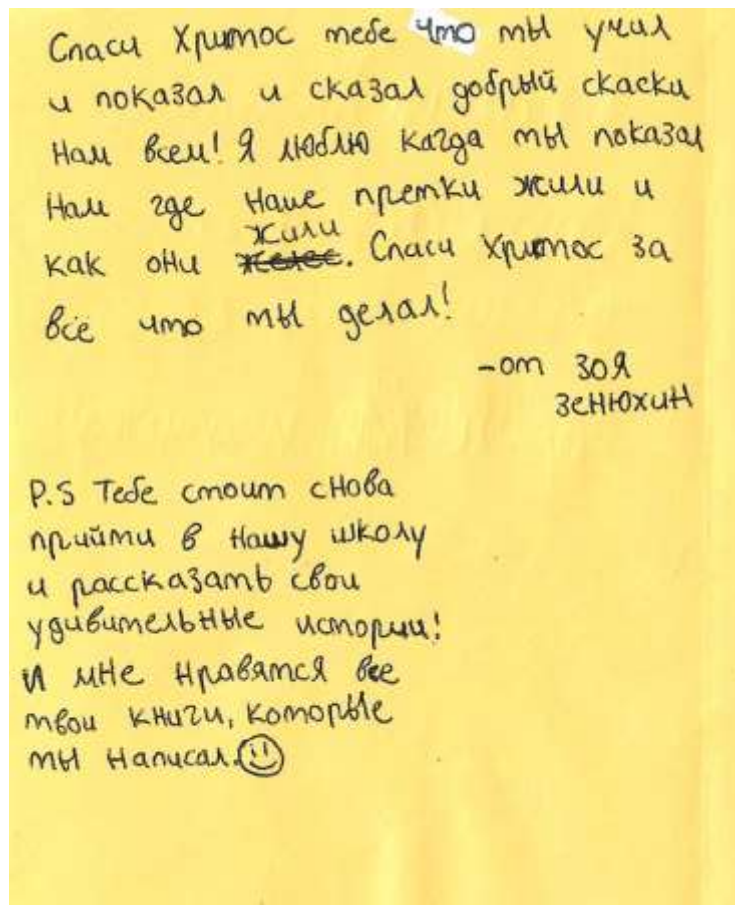 Спаси Хритос тебе что ты учил
и показал и сказал добрый скаски
Нам всем! Я люблю кагда ты показал
Нам где Наше претки жили и
как они жили. Спаси Хритос за
все что ты делал!
-от Зоя
Зенюхин
P.S Тебе стоит снова
прийти в Нашу школу
и рассказать свои
удивительные истории!
И мне нравятся все
твои книги, которые
ты Написал.